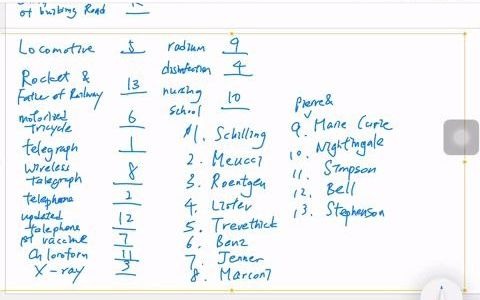 of building Road 12
Locomotive 5
Rocket &
Father of Railway 13
motorized
Tricycle 6
telegraph 1
Wireless
telegraph 8
telephone 2
updated
telephone 12
1st vaccine 7
Chloroform 11
X-ray 3
radium 9
disinfection 4
nursing
school 10
1. Schilling
2. Meucci
3. Roentgen
4. Lister
5. Trevethick
6. Benz
7. Jenner
8. Marconi
Pierre &
9. Marie Curie
10. Nightingale
11. Simpson
12. Bell
13. Stephenson